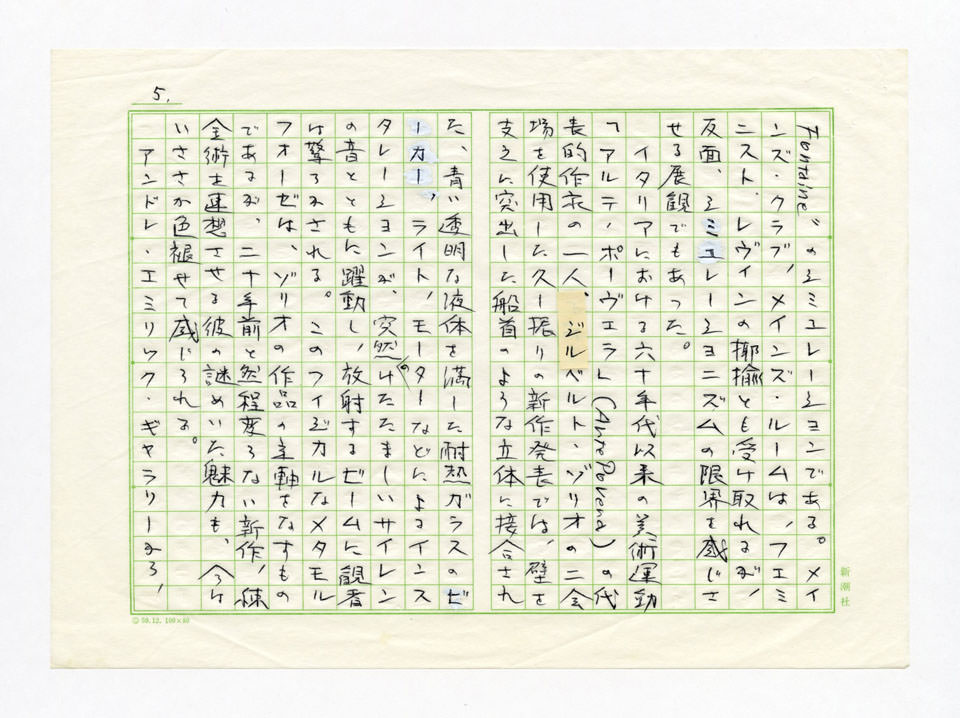 5.
Fontaine”のシミュレーションである。メイ
ンズ・クラブ、メインズ・ルームは、フェミ
ニスト、レヴィンの揶揄とも受け取れるが、
反面、シミュレーショニズムの限界を感じさ
せる展観でもあった。
イタリアにおける六十年代以来の美術運動
「アルテ・ポーヴェラ」(Arte Povera)の代
表的作家の一人、ジルベルト・ゾリオの二会
場を使用した久し振りの新作発表では、壁を
支えに突出した船首のような立体に接合され
た、青い透明な液体を満した耐熱ガラスのビ
ーカー、ライト、モーターなどによるインス
タレーションが、突然のけたたましいサイレン
の音とともに躍動し、放射するビームに観者
は驚ろかされる。このフィジカルなメタモル
フォーゼは、ゾリオの作品の主軸をなすもの
であるが、二十年前と然程変らない新作、錬
金術を連想させる彼の謎めいた魅力も、今は
いささか色褪せて感じられる。
アンドレ・エミリック・ギャラリーから、
新潮社
59.12. 100×50